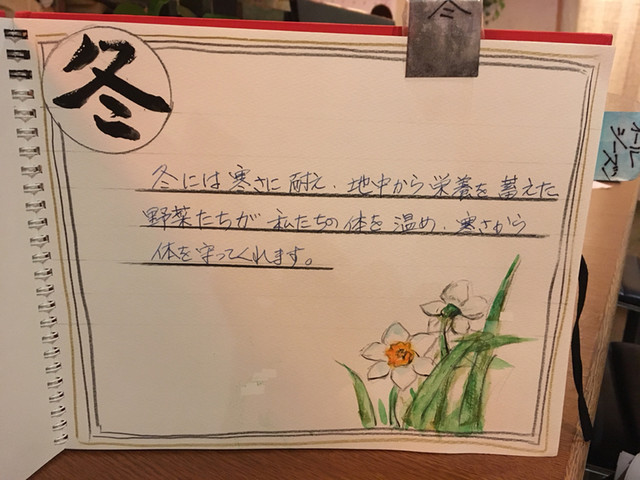 冬
冬
冬には寒さに耐え、地中から栄養を蓄えた
野菜たちが私たちの体を温め、寒さから
体を守ってくれます。
オール
シーズン